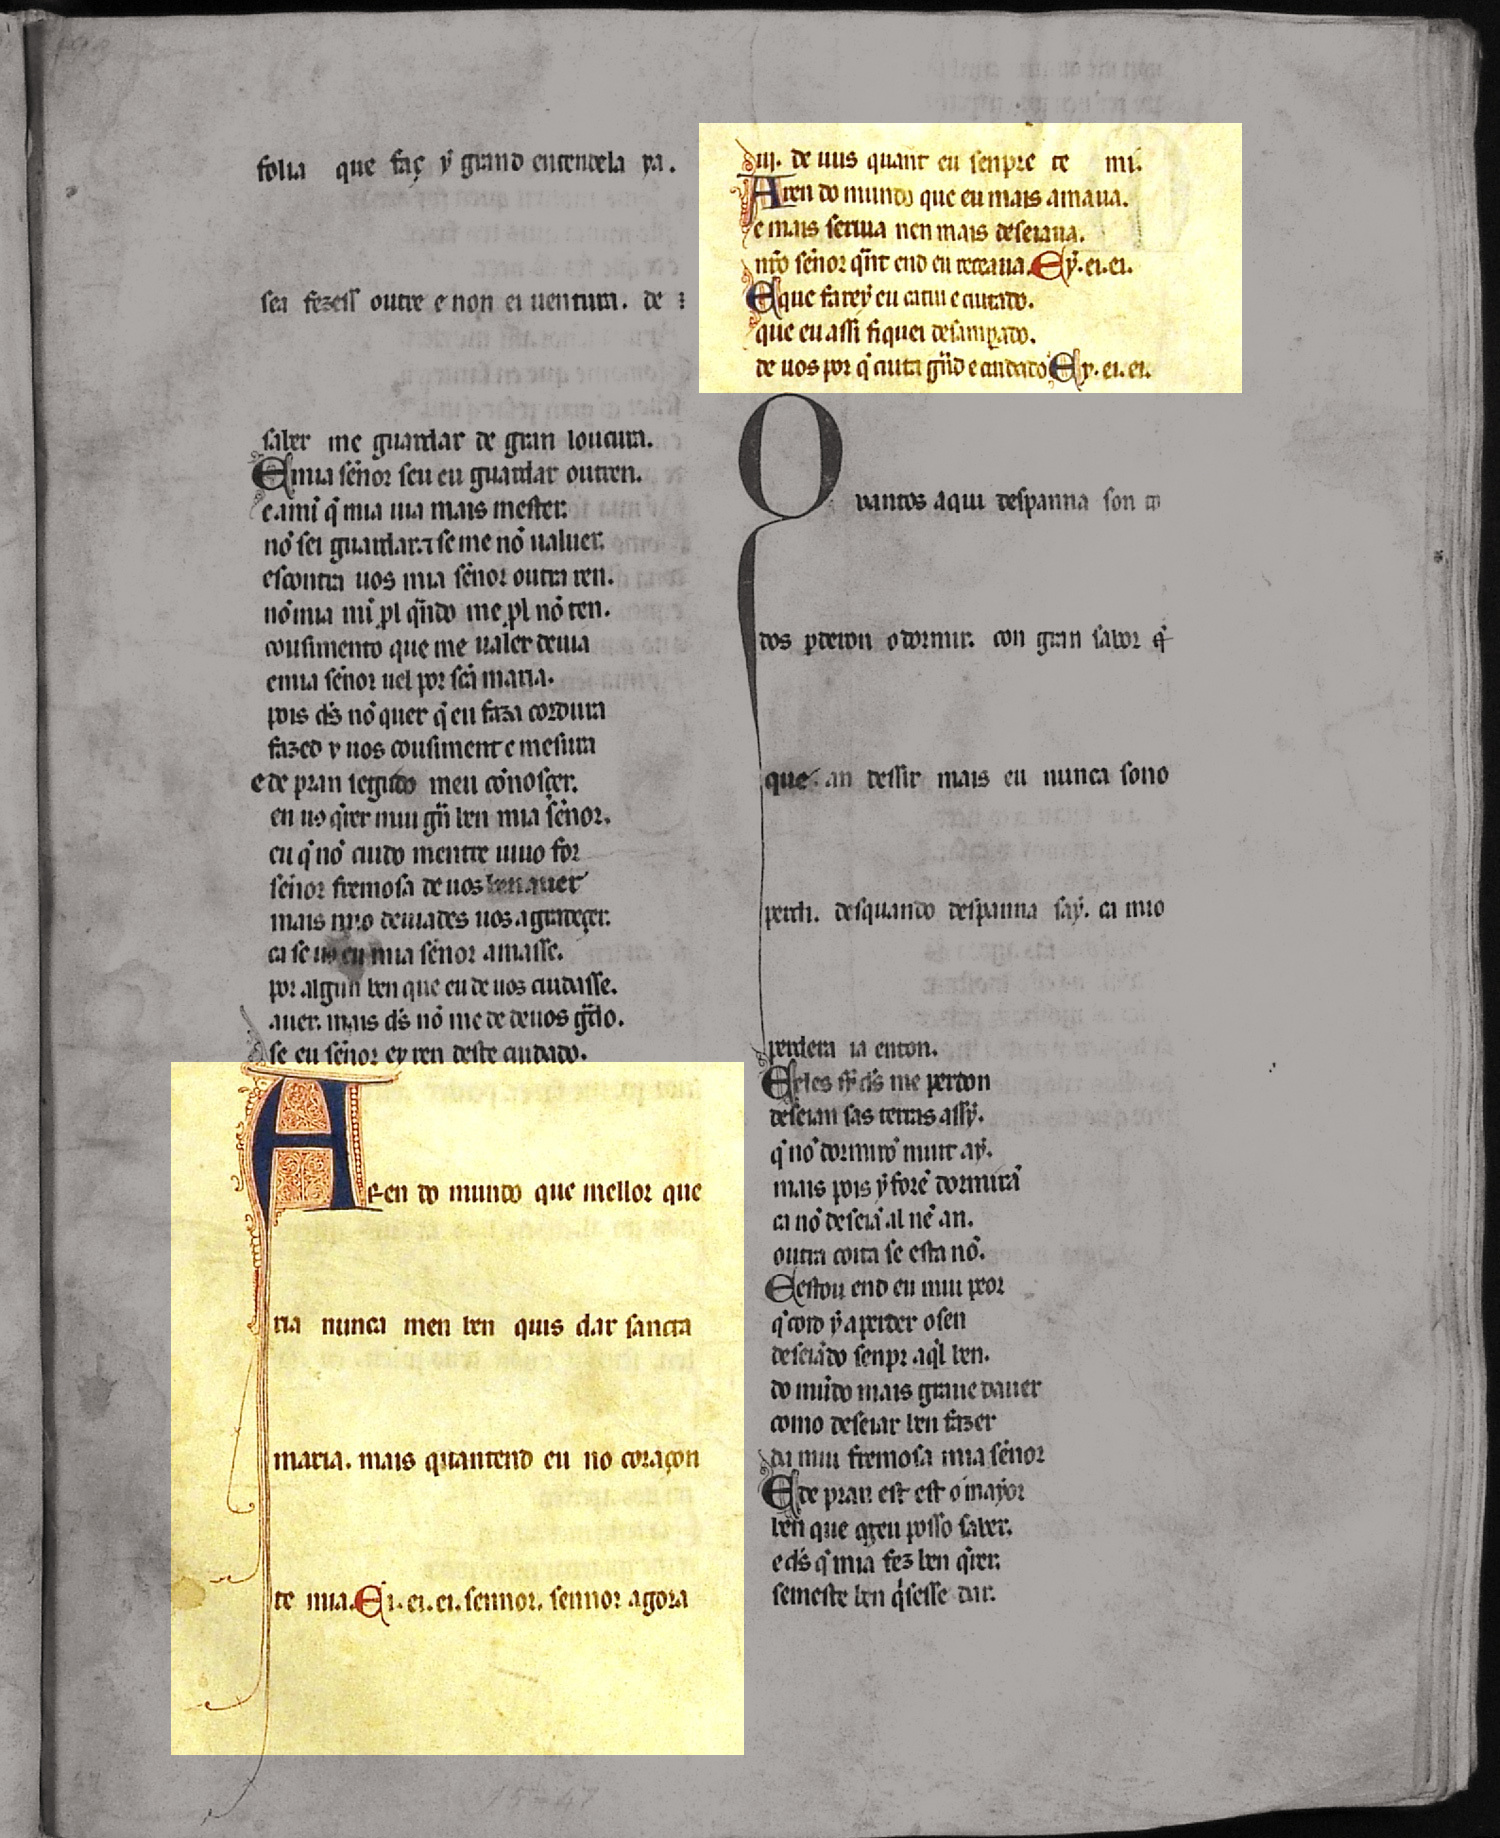 folia que faç ẏ grand entendela ya.
sea fezess outre e non ei uentura. de
saber me guardar de gran loucura.
E mia sẽnor seu eu guardar outren.
e ami q̃ mia uia mais mester.
nõ sei guardar. ⁊ se me nõ ualuer.
escontra uos mia sẽnor outra ren.
nõ mia mi pl qñdo me pl nõ ten.
cousimento que me ualer deuia
e mia sẽnor uel por scã maria.
pois d̃s nõ quer q̃ eu faza cordura
fazed y uos cousiment e mesura
e de pran segudo meu conosçer.
en uo q̃rer mui gñ ben mia sẽnor.
eu q̃ nõ cuido mentre uiuo for
sẽnor fremosa de uos ben auer
mais nṽo deuiades uos agradeçer.
ca se uos eu mia sẽnor amasse.
por algun ben que eu de uos cuidasse.
auer. mais d̃s nõ me de deuos gr̃do.
se eu sẽnor ey ren deste cuidado.
A Ren do mundo que mellor que
ria nunca men ben quis dar sancta
maria. mais quantend eu no coraçon
te mia. Ei. ei. ei. sennor. sennor agora
ui. de uus quant eu senpre te mi.
A ren do mundo que eu mais amaua.
e mais seruia nen mais deseiaua.
nrõ sẽnor qñt end eu receaua. Eẏ. ei. ei.
E que farey eu catiu e cuitado.
que eu assi fiquei desamꝑado.
de uos por q̃ cuita gñd e cuidado Ey. ei. ei.
O vantos aqui despanna son to
dos pderon o dormir. con gran sabor q̃
que an dessir mais eu nunca sono
perdi. desquando despanna saẏ. ca mio
perdera ia enton.
E eles ss̃ d̃s me perdon
deseian sas terras assẏ.
q̃ nõ dormirõ muit aẏ.
mais pois ẏ forẽ dormirã
ca nõ deseiã al nẽ an.
outra coita se esta nõ.
E estou end eu mui peor
q̃ coid ẏ a perder o sen
deseiãdo senpr aq̃l ben.
do mũdo mais graue dauer
como deseiar ben fazer
da mui fremosa mia sẽnor
E de pran est est o mayor
ben que ogeu posso saber.
e d̃s q̃ mia fez ben q̃rer.
semeste ben q̃sesse dar.